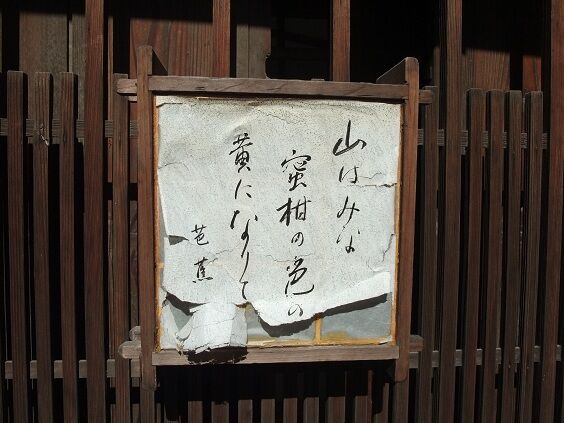 山はみな
蜜柑の色の
黄になりて
芭蕉